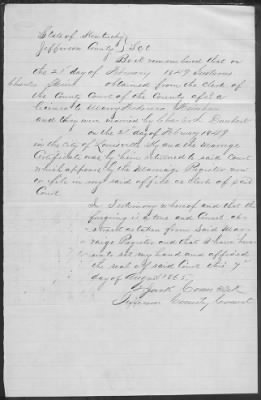 State of Kentucky
Jefferson County } Sct
Be it remembered that on
the 21st day of February 1849
Charles obtained from the Clerk of
the County Court of the County afsd a
licence to Marry
and they were married by Chas
on the 21 day of February 1849
in the City of Louisville Ky and the Marriage
Certificate was by him returned to said Court
which appears by the Marriage Register now
on file in my said office as Clerk of said
Court
In Testimony whereof and that the
forgoing is a true and Correct abs
stract as taken from said Mar
riage Register and that I have here
unto set my hand and affixed
the seal of said Court this 7th
day of August 1865
Clerk
Jefferson County Court